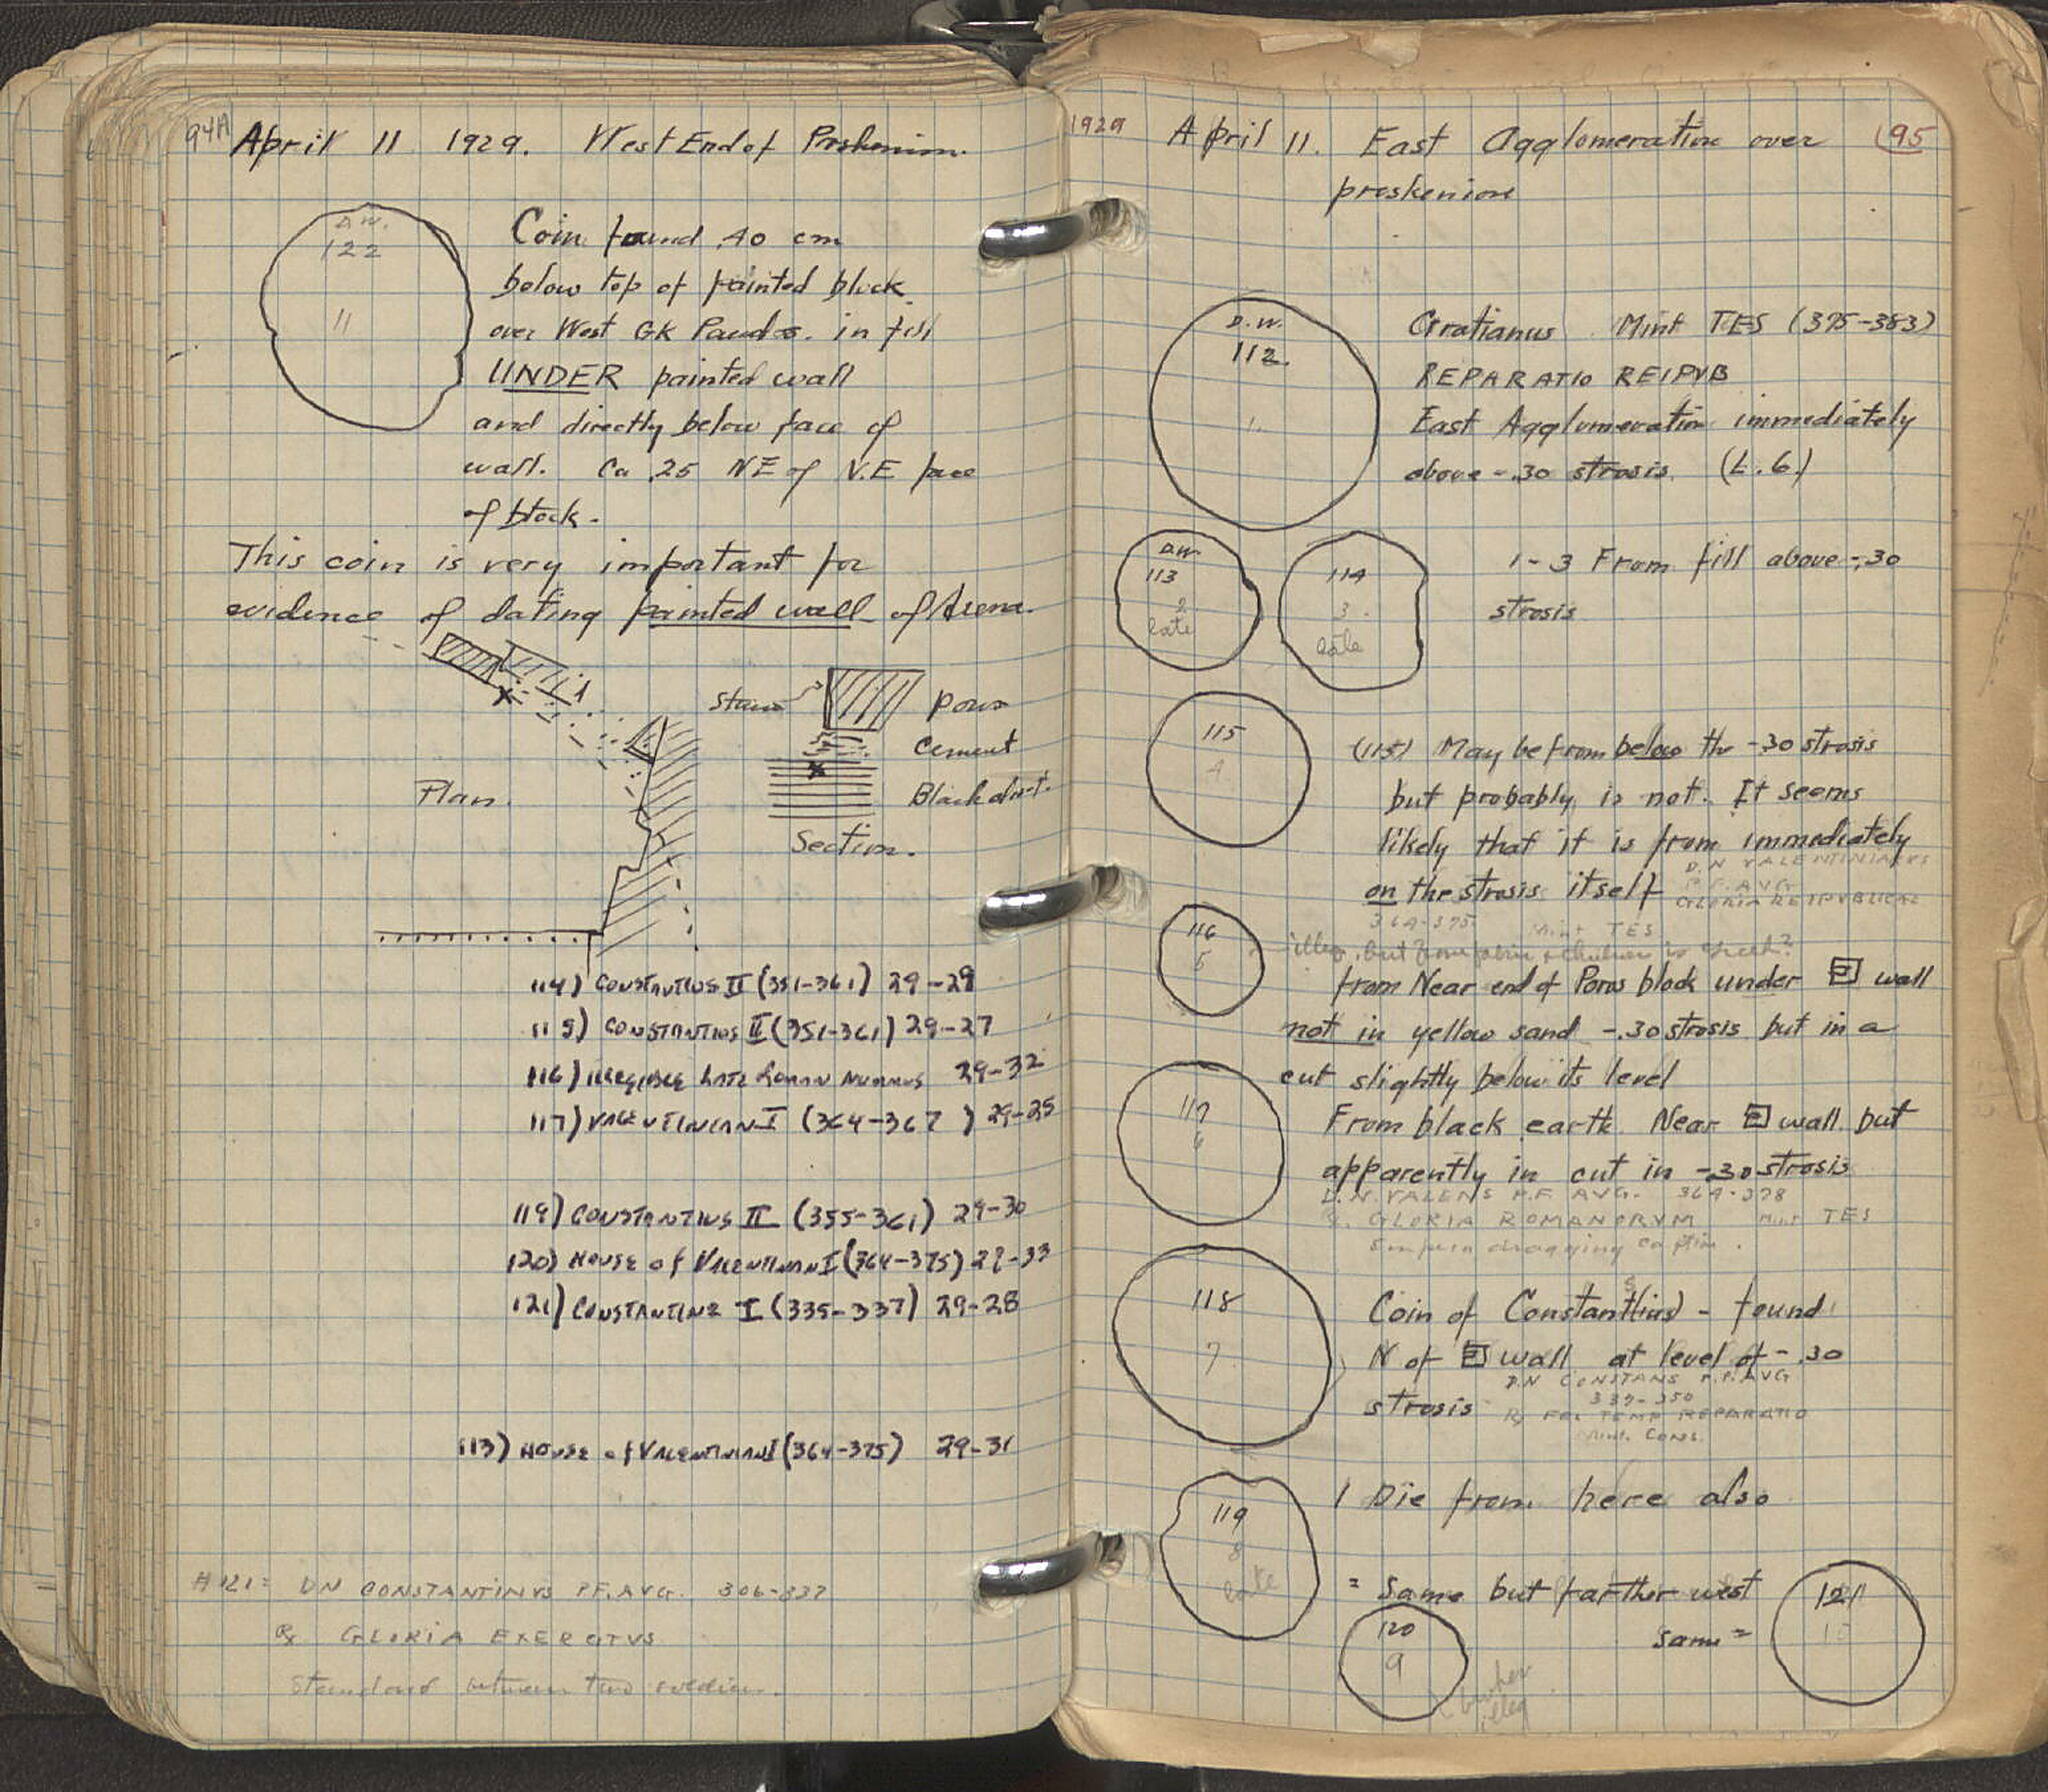 94A April 11 1929. West End of Proskenion.
D.W.
122
11
Coin found .40 cm
below top of painted block
over West GK Parodos. in fill
UNDER painted wall
and directly below face of
wall. Ca .25 NE of N.E face
of block.
This coin is very important for
evidence of dating painted wall of Arena.
Plan.
Stucco
Poros
Cement
Black dirt.
Section.
114) CONSTANTIUS II (351-361) 29-29
115) CONSTANTIUS II (351-361) 29-27
116) ILLEGIBLE LATE ROMAN NUMMUS 29-32
117) VALENTINIAN I (364-367) 29-25
119) CONSTANTIUS II (355-361) 29-30
120) HOUSE of VALENTINIAN I (364-375) 29-33
121) CONSTANTINE I (335-337) 29-28
113) HOUSE of VALENTINIAN I (364-375) 29-31
#121= DN CONSTANTINVS P.F. AVG. 306-337
Rx GLORIA EXERCITVS
Standard between two soldiers.
1929 April 11. East Agglomeration over 95
proskenion
D.W.
112.
1.
Gratianus Mint TES (375-383)
REPARATIO REIPVB
East Agglomeration immediately
above -.30 strosis. (L.6.)
D.W.
113
2
late
114
3.
late
1-3 From fill above -.30
strosis
115
4.
(115) May be from below the -.30 strosis
but probably is not. It seems
likely that it is from immediately
on the strosis itself
D.N VALENTINIANVS
P.F. AVG
GLORIA REIPVBLICAE
364-375. Mint TES
116
5
illeg, but from is Greek?
from Near end of Poros block under E wall
not in yellow sand -.30 strosis but in a
cut slightly below its level
117
6
From black earth. Near E wall but
apparently in cut in -.30 strosis
D.N. VALENS P.F. AVG. 364-378
Rx. GLORIA ROMANORVM Mint TES
Emperor dragging captive.
118
7
Coin of Constantius - found
N of E wall at level of -.30
strosis
D.N CONSTANS P.F. AVG
337-350
Rx FEL TEMP REPARATIO
Mint. CONS.
119
8
late
1 Die from here also
= same but farther west
120
9
same =
121
10
broken
illeg